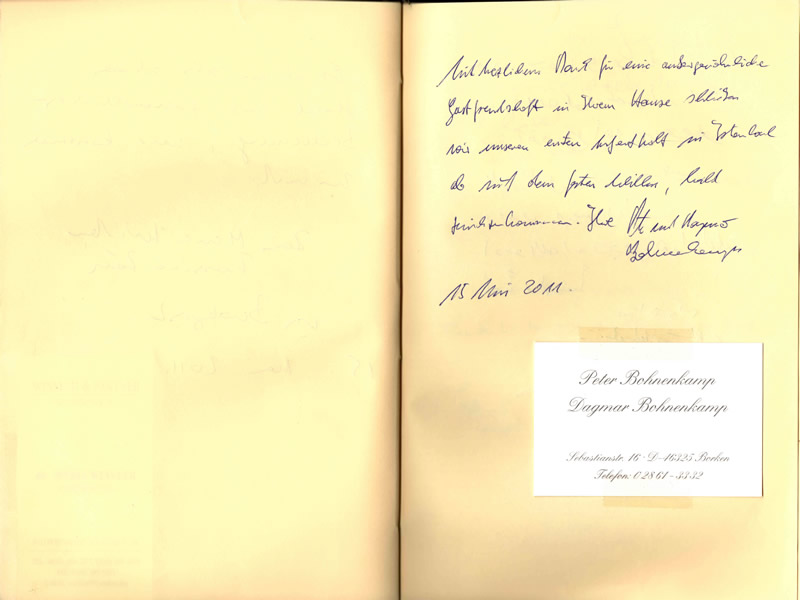 Mit herzlichem Dank für eine außergewöhnliche
Gastfreundschaft in Ihrem Hause schließen
wir unseren ersten Aufenthalt in Istanbul
ab mit dem festen Willen, bald
zurückzukommen. Ihre und Dagmar
Bohnenkamp
15 Mai 2011.
Peter Bohnenkamp
Dagmar Bohnenkamp
Sebastianstr. 16 · D-46325 Borken
Telefon: 02861-3332